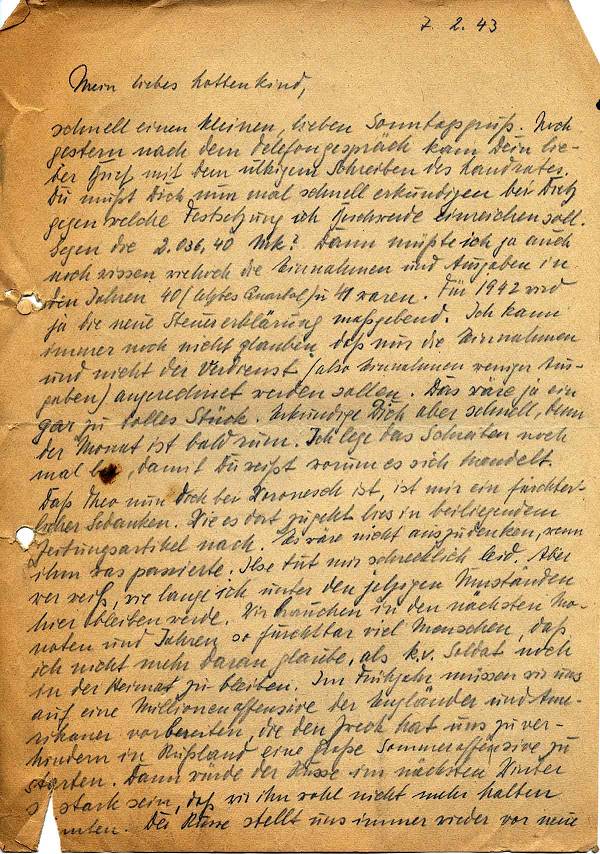 7. 2. 43
Mein liebes Lottenkind,
schnell einen kleinen, lieben Sonntagsgruß. Noch
gestern nach dem Telefongespräch kam Dein lie-
ber Brief mit dem ulkigen Schreiben des Landrates.
Du mußt Dich nun mal schnell erkundigen bei
gegen welche Festsetzung ich Beschwerde einreichen soll.
Gegen die 2.036,40 Mk? Dann müßte ich ja auch
noch wissen wie hoch die Einnahmen und Ausgaben in
den Jahren 40 (letztes Quartal) u 41 waren. Für 1942 wird
ja die neue Steuererklärung maßgebend. Ich kann
immer noch nicht glauben, daß nur die Einnahmen
und nicht der Verdienst (also Einnahmen weniger Aus-
gaben) angerechnet werden sollen. Das wäre ja ein
gar zu tolles Stück. Erkundige Dich aber schnell, denn
der Monat ist bald rum. Ich lege das Schreiben noch
mal bei, damit Du weißt worum es sich handelt.
Daß Theo nun dicht bei ist, ist mir ein fürchter-
licher Gedanken. Wie es dort zugeht lies in beiliegendem
Zeitungsartikel nach. Es wäre nicht auszudenken, wenn
ihm was passierte. Ilse tut mir schrecklich leid. Aber
wer weiß, wie lange ich unter den jetzigen Umständen
hier bleiben werde. Wir brauchen in den nächsten Mo-
naten und Jahren so furchtbar viel Menschen, daß
ich nicht mehr daran glaube, als k.v. Soldat noch
in der Heimat zu bleiben. Im Frühjahr müssen wir uns
auf eine Millionenoffensive der Engländer und Ame-
rikaner vorbereiten, die den Zweck hat uns zu ver-
hindern in Rußland eine große Sommeroffensive zu
starten. Dann würde der Russe im nächsten Winter
so stark sein, daß wir ihn wohl nicht mehr halten
könnten. Der Russe stellt uns immer wieder vor neue